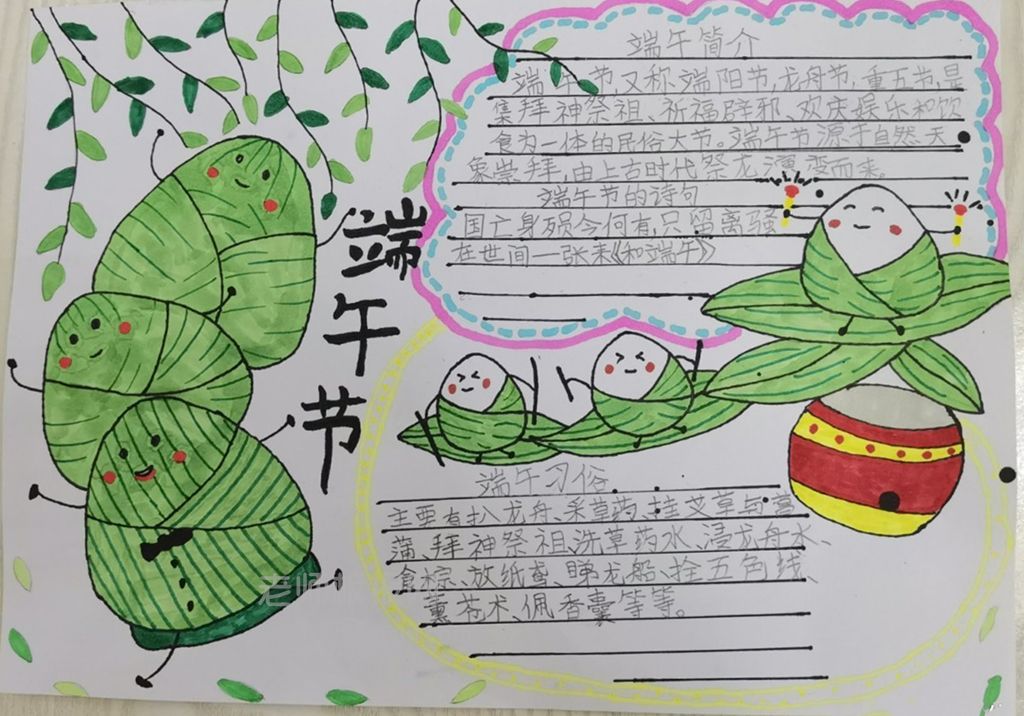 端午节
端午简介
端午节,又称端阳节,龙舟节,重五节,是
集拜神祭祖、祈福辟邪、欢庆娱乐和饮
食为一体的民俗大节。端午节源于自然天
象崇拜,由上古时代祭龙演变而来。
端午节的诗句
国亡身殒今何有,只留离骚
在世间一张耒《和端午》
端午习俗
主要有扒龙舟、采草药、挂艾草与菖
蒲、拜神祭祖、洗草药水、浸龙舟水、
食粽、放纸鸢、睇龙船、拴五色线、
薰苍术、佩香囊等等。
老师